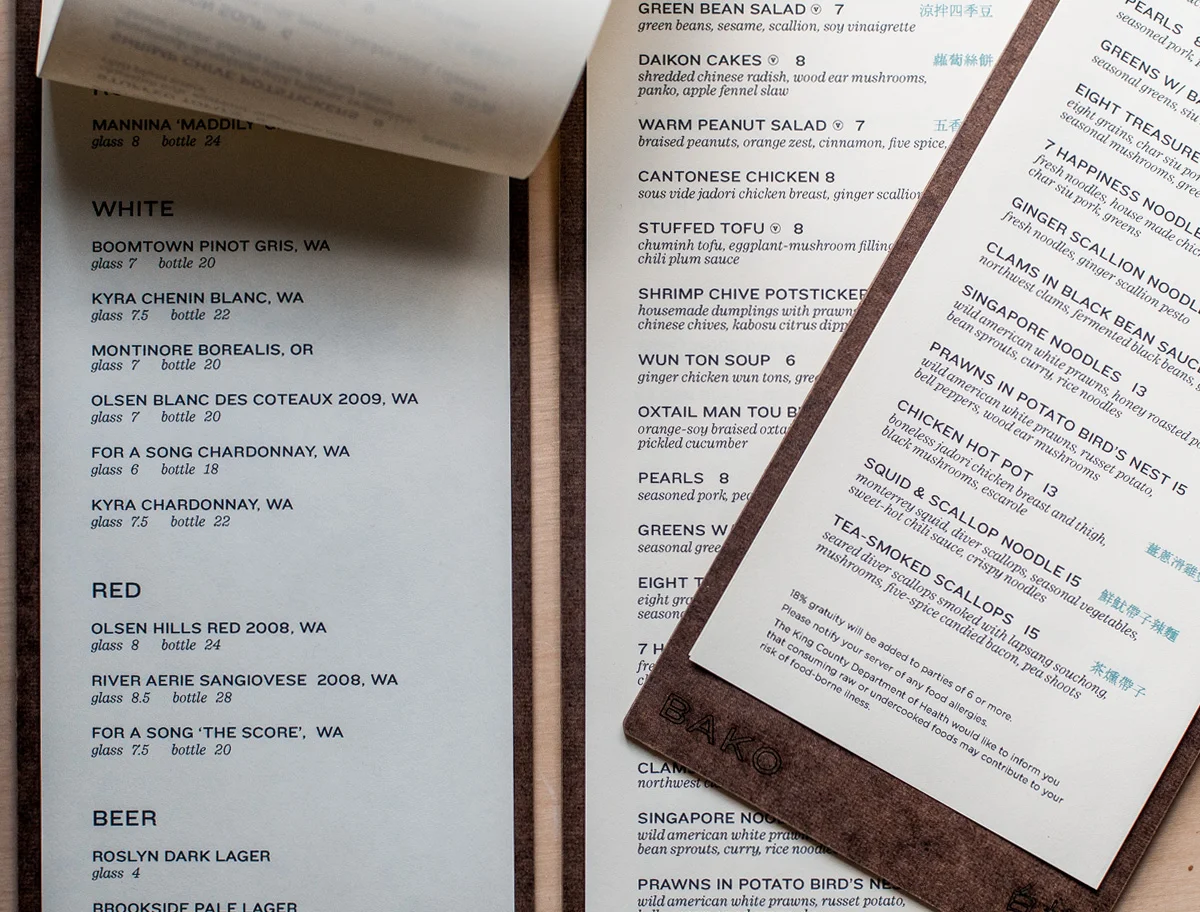 MANNINA ‘MADDILY’
glass 8 bottle 24
WHITE
BOOMTOWN PINOT GRIS, WA
glass 7 bottle 20
KYRA CHENIN BLANC, WA
glass 7.5 bottle 22
MONTINORE BOREALIS, OR
glass 7 bottle 20
OLSEN BLANC DES COTEAUX 2009, WA
glass 7 bottle 20
FOR A SONG CHARDONNAY, WA
glass 6 bottle 18
KYRA CHARDONNAY, WA
glass 7.5 bottle 22
RED
OLSEN HILLS RED 2008, WA
glass 8 bottle 24
RIVER AERIE SANGIOVESE 2008, WA
glass 8.5 bottle 28
FOR A SONG ‘THE SCORE’, WA
glass 7.5 bottle 20
BEER
ROSLYN DARK LAGER
glass 4
BROOKSIDE PALE LAGER
GREEN BEAN SALAD Ⓥ 7 涼拌四季豆
green beans, sesame, scallion, soy vinaigrette
DAIKON CAKES Ⓥ 8 蘿蔔絲餅
shredded chinese radish, wood ear mushrooms,
panko, apple fennel slaw
WARM PEANUT SALAD Ⓥ 7 五香
braised peanuts, orange zest, cinnamon, five spice,
CANTONESE CHICKEN 8
sous vide jadori chicken breast, ginger scallion
STUFFED TOFU Ⓥ 8
chuminh tofu, eggplant-mushroom filling
chili plum sauce
SHRIMP CHIVE POTSTICKER
housemade dumplings with prawn
chinese chives, kabosu citrus dipp
WUN TON SOUP 6
ginger chicken wun tons, gre
OXTAIL MAN TOU B
orange-soy braised oxta
pickled cucumber
PEARLS 8
seasoned pork, pe
GREENS W/
seasonal gree
EIGHT T
eight gra
season
7 H
fre
CLAM
northwest c
SINGAPORE NOO
wild american white praw
bean sprouts, curry, rice noodle
PRAWNS IN POTATO BIRD’S NE
wild american white prawns, russet potato,
PEARLS
seasoned pork,
GREENS W/ BA
seasonal greens, siu
EIGHT TREASURE
eight grains, char siu por
seasonal mushrooms, gree
7 HAPPINESS NOODLE
fresh noodles, house made chic
char siu pork, greens
GINGER SCALLION NOODL
fresh noodles, ginger scallion pesto
CLAMS IN BLACK BEAN SAUC
northwest clams, fermented black beans,
SINGAPORE NOODLES 13
wild american white prawns, honey roasted po
bean sprouts, curry, rice noodles
PRAWNS IN POTATO BIRD’S NEST 15
wild american white prawns, russet potato,
bell peppers, wood ear mushrooms
CHICKEN HOT POT 13
boneless jadori chicken breast and thigh,
black mushrooms, escarole
SQUID & SCALLOP NOODLE 15 鮮魷帶子辣麵
monterey squid, diver scallops, seasonal vegetables,
sweet-hot chili sauce, crispy noodles
TEA-SMOKED SCALLOPS 15 茶燻帶子
seared diver scallops smoked with lapsang souchong,
mushrooms, five-spice candied bacon, pea shoots
18% gratuity will be added to parties of 6 or more.
Please notify your server of any food allergies.
The King County Department of Health would like to inform you
that consuming raw or undercooked foods may contribute to your
risk of food-borne ilness.
BAKO